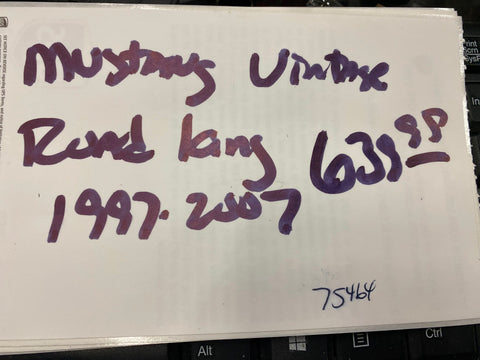 Mustang Vintage
Road King 639.98
1997-2007
75464
Alt
Ctrl